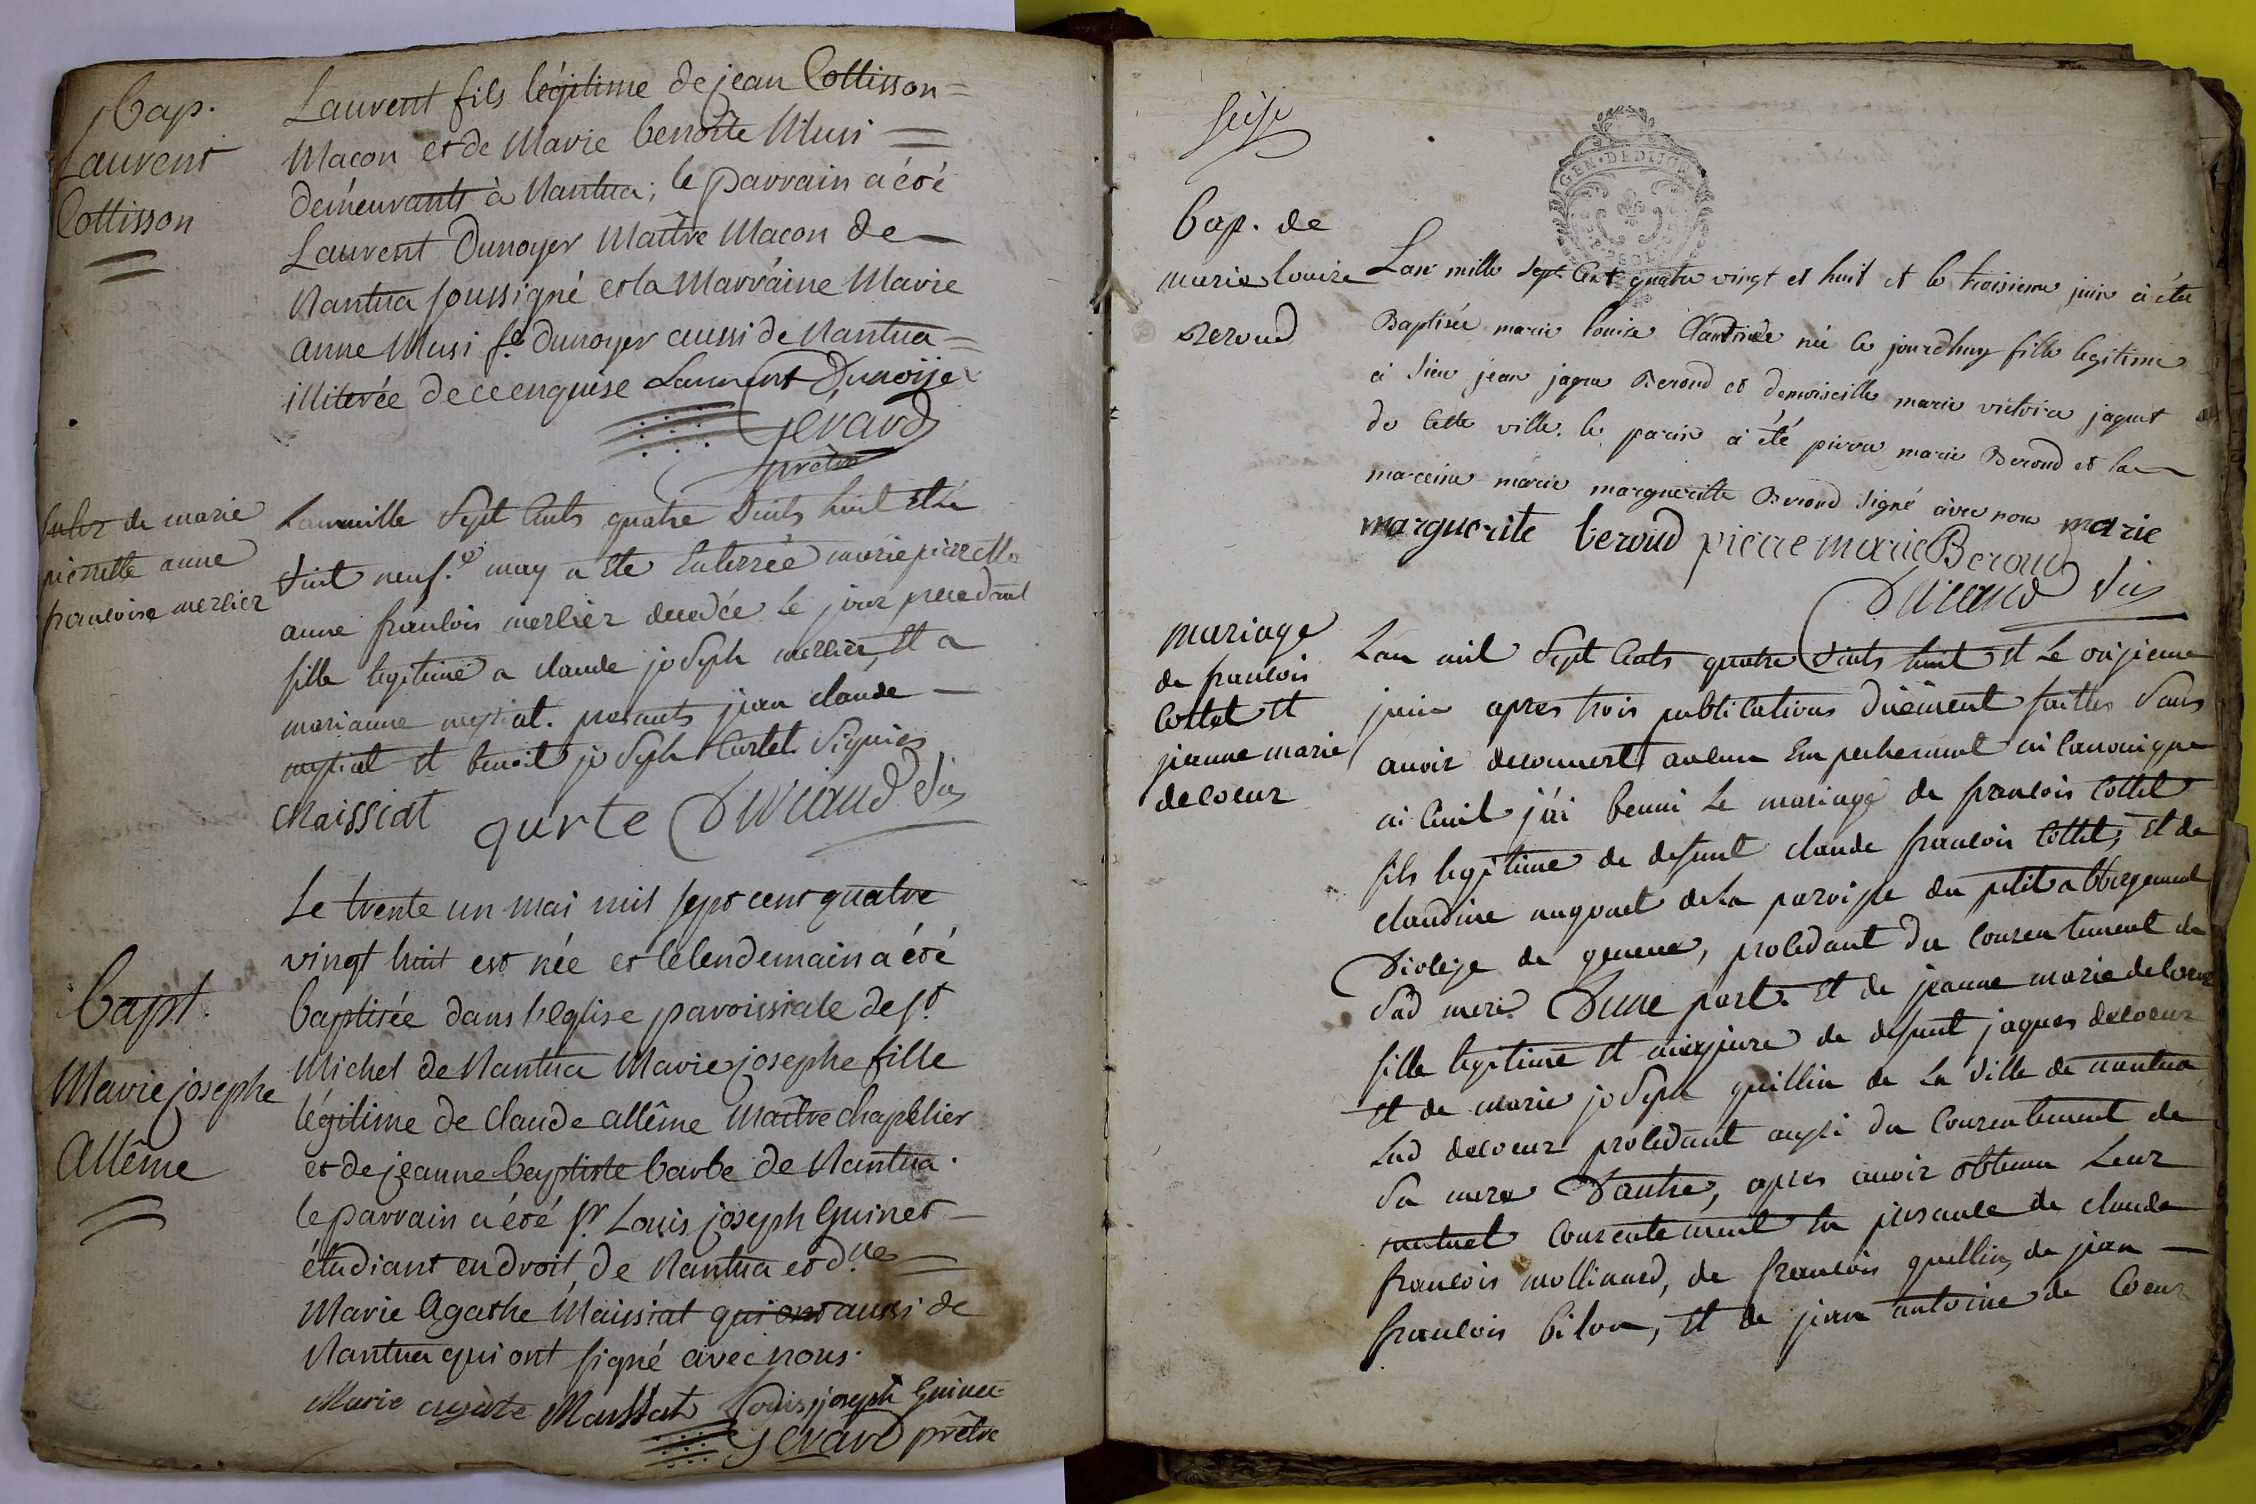 Bap.
Laurent
Cottisson
Laurent fils légitime de jean Cottisson =
Macon et de Marie benoite Musi =
deméurants à Nantua; le parrain a été
Laurent Dunoyer Maître Macon de —
Nantua soussigné et la Marráine Marie
anne Musi fe dunoyer aussi de Nantua =
illiterée de ce enquise Laurent Dunoije
Gerard
prêtre
de marie
pierrette anne
francoise merlier
Lan mille Sept Cents quatre vints huit Et Le
vint neuf.e may a Ete Enterrée marie pierrette
anne francois merlier decedée Le jour precedant
fille legitime a claude joseph merlier, Et a
marianne meysiat. presents jean claude —
meysiat Et benoit joseph Curtet Signiés
Maissiat qurte Duviand Vic
Bapt.
Marie josephe
Allême
Le trente un mai mil sept cent quatre
vingt huit est née et le lendemain a été
baptisée dans l'eglise paroissiale de st.
Michel de Nantua Marie josephe fille
légitime de Claude allême maître chapelier
et de jeanne baptiste barbe de Nantua.
le parrain a été sr. Louis joseph Guinet —
étudiant en droit, de Nantua et d.lle =
Marie Agathe Maissiat qui ont aussi de
Nantua qui ont signé avec nous.
Marie agate Maissiat Louis joseph Guinet
Gerard prêtre
seise
GEN. DE DIJON
Bap. de
marie louise
Beroud
Lan mille sept cent quatre vingt et huit et le troisieme juin a été
Baptisée marie louise Claudine né le jourdhuy fille legitime
à sieur jean jaque Beroud et demoiselle marie victoire jaquet
de cette ville. le parin a été pierre marie Beroud et la
marreine marie marguerite Beroud signé avec nous marie
marguerite beroud pierre marie Beroud
Duviand Vic
mariage
de francois
Cottet Et
jeanne marie
decoeur
Lan mil Sept Cents quatre vints huit Et Le onzieme
juin apres trois publications duëment faittes Sans
avoir decouvert aucun Empechement ni canonique
ni Civil j'ai benni Le mariage de francois Cottet
fils legitime de defunt claude francois Cottet, Et de
claudine de La paroisse du petit abbergement
Dioceze de geneve, procedant du consentement de
Sad mere Dune part. Et de jeanne marie decoeur
fille legitime Et majeure de defunt jaques decoeur
Et de marie joseph guillin de La ville de nantua
Lad decoeur procedant aussi du consentement de
Sa mere D'autre, apres avoir obtenu Leur
mutuel consentement En presence de claude
francois mollinard, de francois guillin, de jean —
francois bilon, Et de jean antoine de Coeur